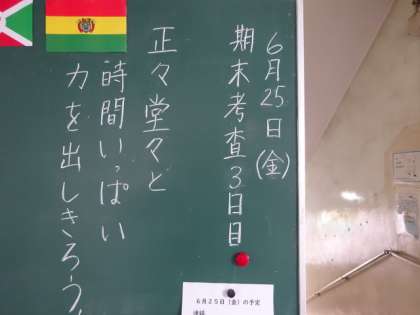 6月25日(金)
期末考査3日目
正々堂々と
時間いっぱい
力を出しきろう!
6月25日(金)の予定
連絡